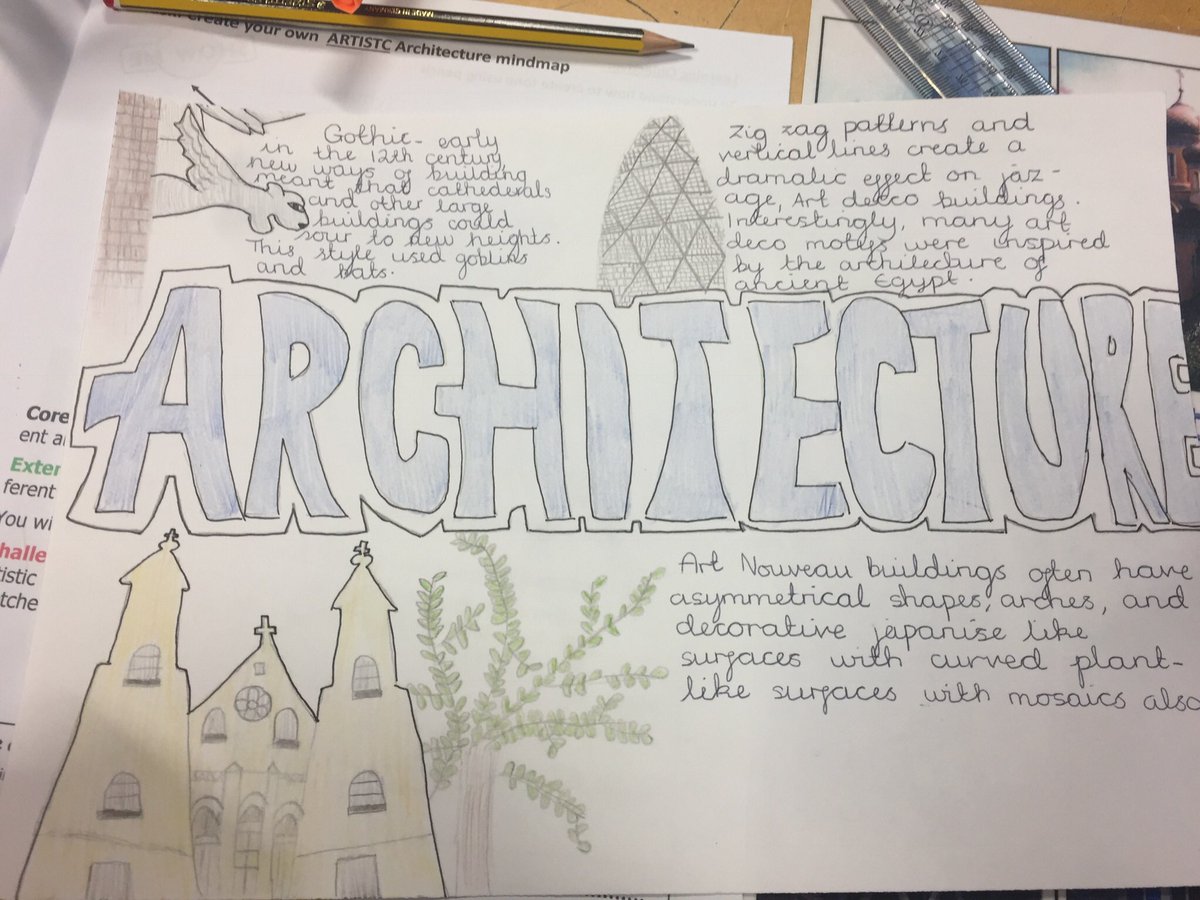 create your own ARTISTC Architecture mindmap
Gothic - early
in the 12th century
new ways of building
meant that cathederals
and other large
buildings could
sour to new heights.
This style used goblins
and bats.
Zig zag patterns and
vertical lines create a
dramatic effect on jaz-
age, Art decco buildings.
Interestingly, many art
deco motifs were inspired
by the architecture of
ancient Egypt.
ARCHITECTURE
Core
ent a
Exter
ferent
You wi
halle
tistic
tche
Art Nouveau buildings often have
asymmetrical shapes, arches, and
decorative japanise like
surfaces with curved plant-
like surfaces with mosaics also